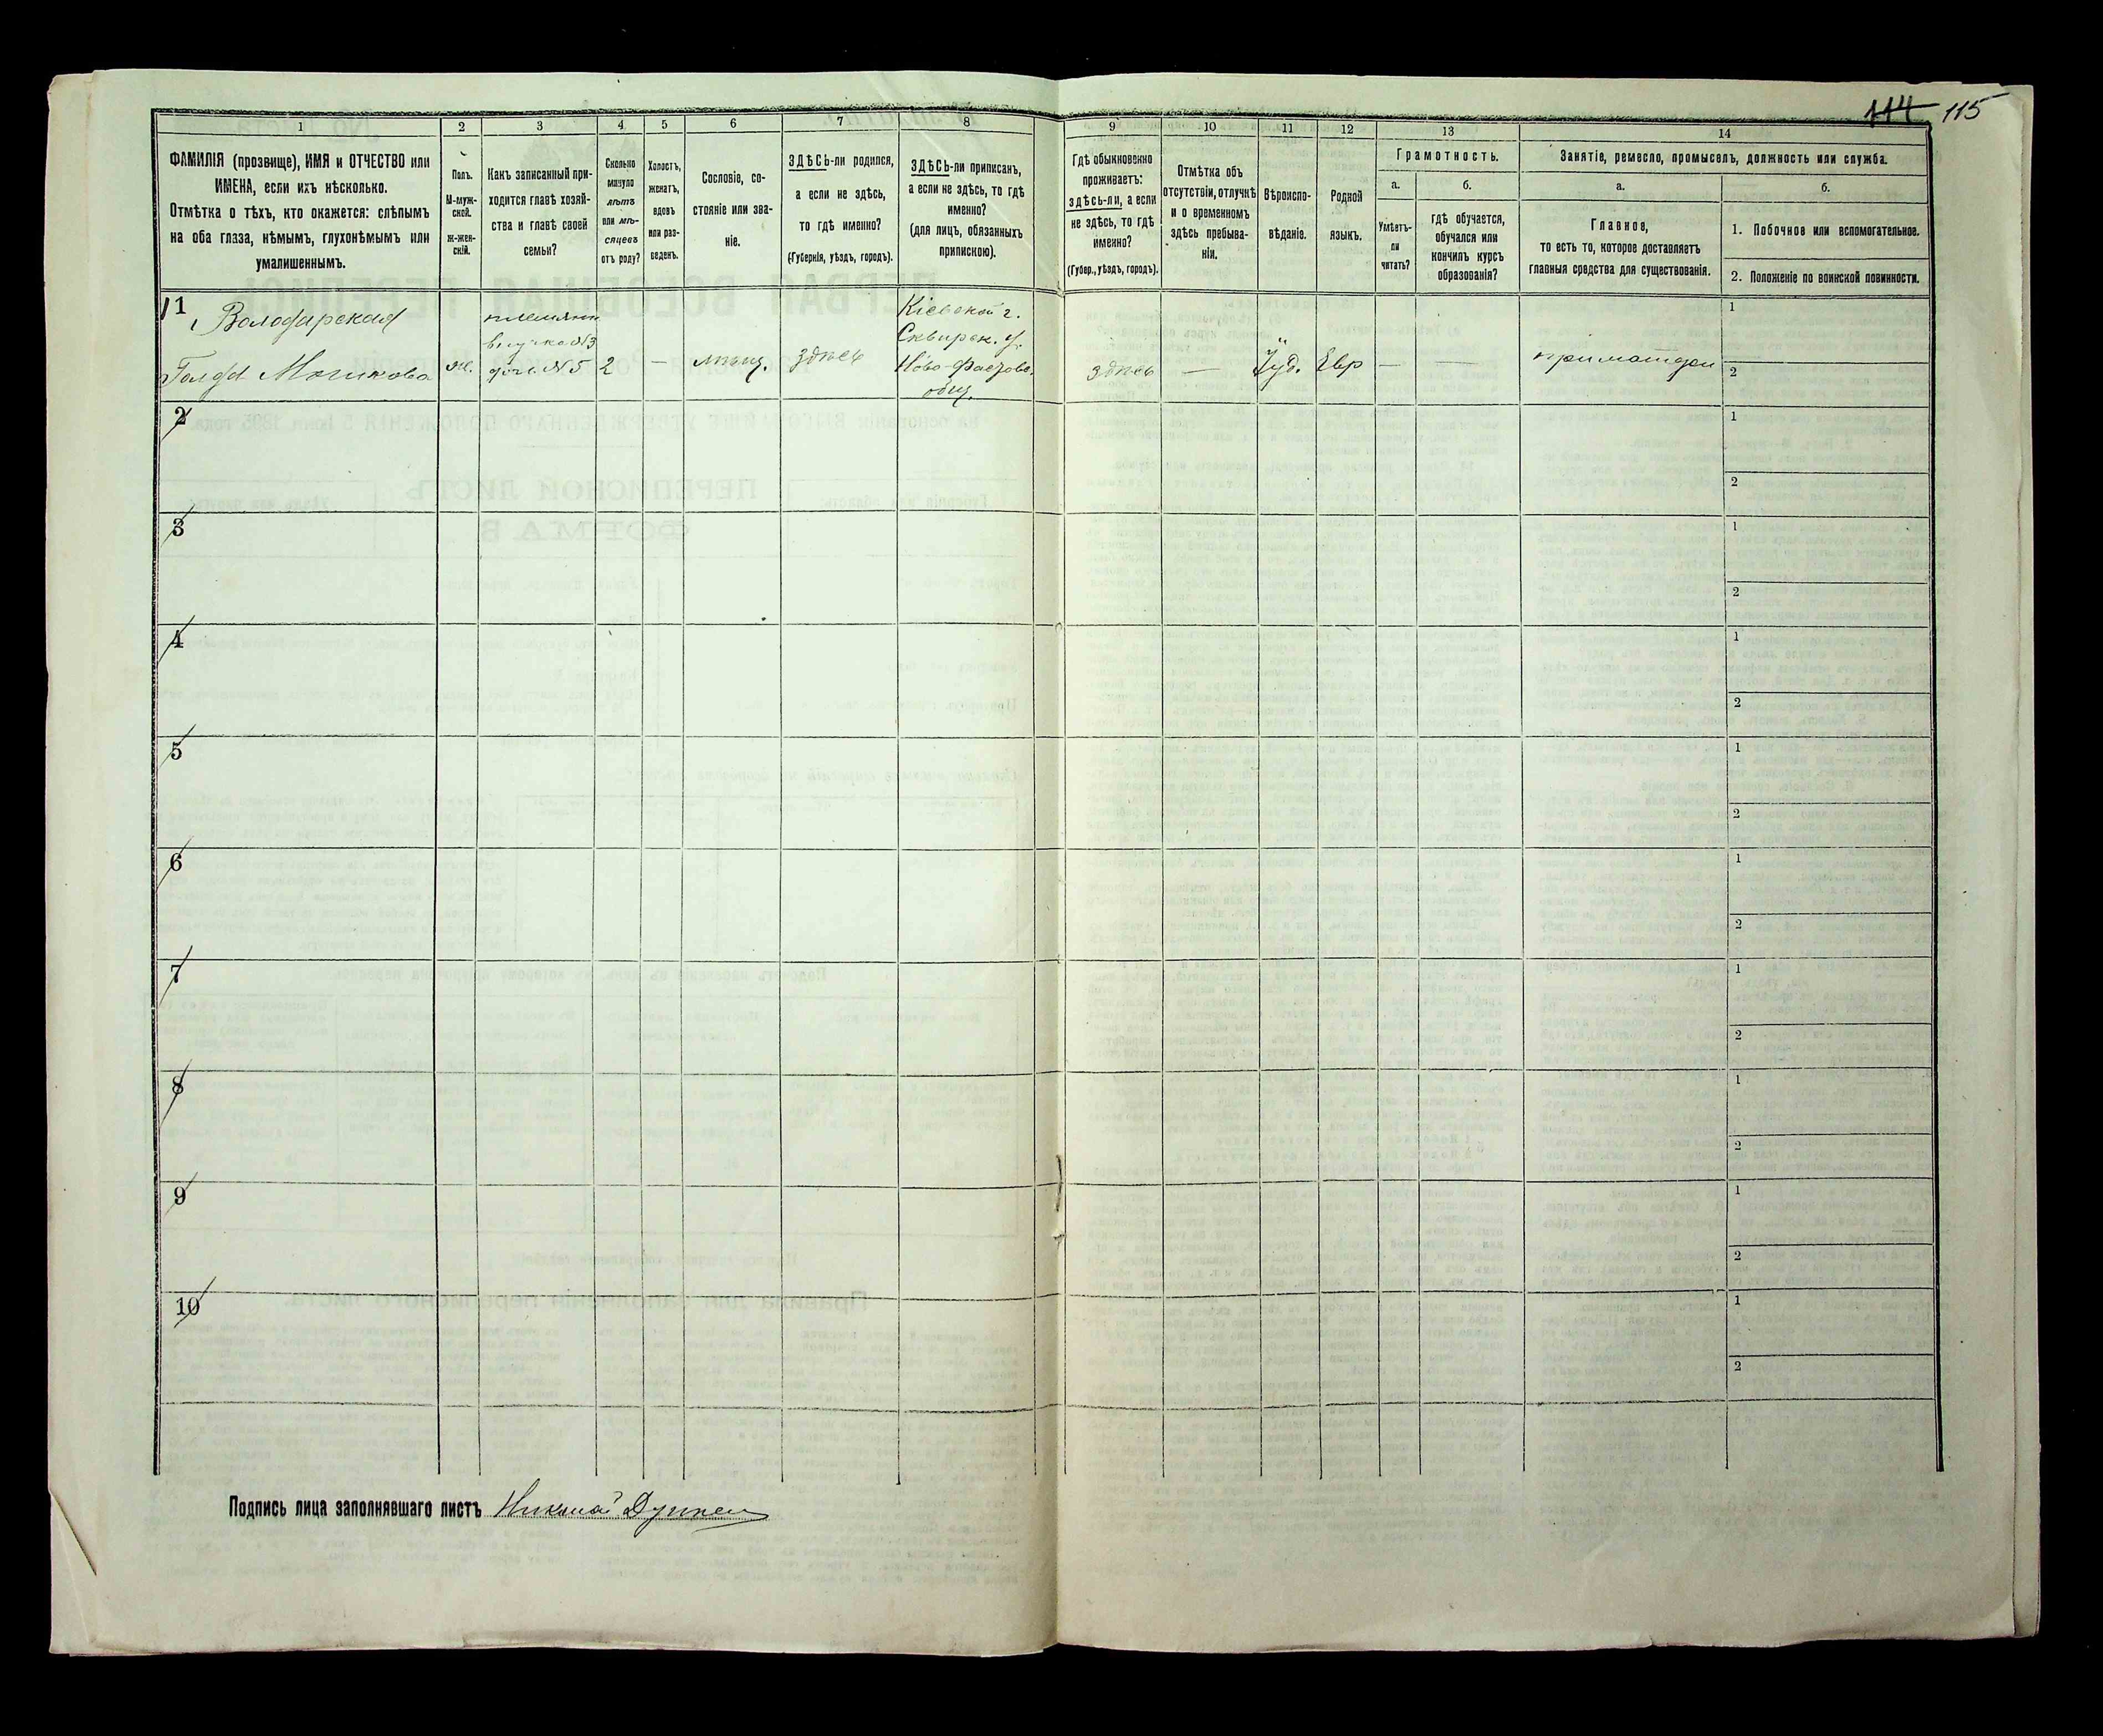 114 115
1 2 3 4 5 6 7 8 9 10 11 12 13 14
ФАМИЛІЯ (прозвище), ИМЯ и ОТЧЕСТВО или
ИМЕНА, если ихъ нѣсколько.
Отмѣтка о тѣхъ, кто окажется: слѣпымъ
на оба глаза, нѣмымъ, глухонѣмымъ или
умалишеннымъ.
Полъ.
М-муж-
ской.
ж-жен-
скій.
Какъ записанный при-
ходится главѣ хозяй-
ства и главѣ своей
семьи?
Сколько
минуло
лѣтъ
или мѣ-
сяцевъ
отъ роду?
Холостъ,
женатъ,
вдовъ
или раз-
веденъ.
Сословіе, со-
стояніе или зва-
ніе.
ЗДѢСЬ-ли родился,
а если не здѣсь,
то гдѣ именно?
(Губернія, уѣздъ, городъ).
ЗДѢСЬ-ли приписанъ,
а если не здѣсь, то гдѣ
именно?
(для лицъ, обязанныхъ
припискою).
Гдѣ обыкновенно
проживаетъ:
здѣсь-ли, а если
не здѣсь, то гдѣ
именно?
(Губер., уѣздъ, городъ).
Отмѣтка объ
отсутствіи, отлучкѣ
и о временномъ
здѣсь пребыва-
ніи.
Вѣроиспо-
вѣданіе.
Родной
языкъ.
Грамотность.
а.
Умѣетъ-
ли
читать?
б.
гдѣ обучается,
обучался или
кончилъ курсъ
образованія?
Занятіе, ремесло, промыселъ, должность или служба.
а.
Главное,
то есть то, которое доставляетъ
главныя средства для существованія.
б.
1. Побочное или вспомогательное.
2. Положеніе по воинской повинности.
1
Володарская
Голда Мошкова
ж.
внучка №3
доч. №5
2
—
мѣщ.
здѣсь
Кіевской г.
Сквирск. у.
Ново-Фастовс.
общ.
здѣсь
—
Іуд.
Евр
—
—
при матери
1
2
2
1
2
3
1
2
4
1
2
5
1
2
6
1
2
7
1
2
8
1
2
9
1
2
10
1
2
Подпись лица заполнявшаго листъ Николай